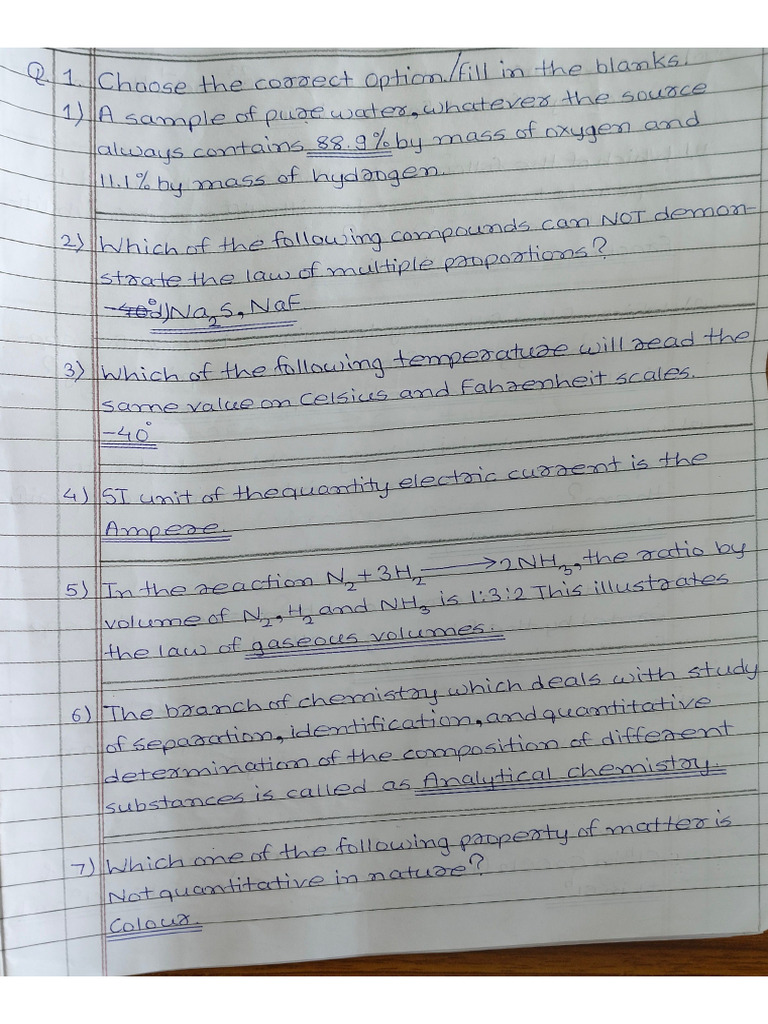 Q. 1. Choose the correct option./fill in the blanks.
1) A sample of pure water, whatever the source
always contains 88.9% by mass of oxygen and
11.1% by mass of hydrogen.
2) Which of the following compounds can NOT demon-
strate the law of multiple proportions?
-40° d) Na₂S, NaF
3) Which of the following temperature will read the
same value on Celsius and Fahrenheit scales.
-40°
4) SI unit of the quantity electric current is the
Ampere.
5) In the reaction N₂+3H₂ ⟶ 2NH₃, the ratio by
volume of N₂, H₂ and NH₃ is 1:3:2 This illustrates
the law of gaseous volumes.
6) The branch of chemistry which deals with study
of separation, identification, and quantitative
determination of the composition of different
substances is called as Analytical chemistry.
7) Which one of the following property of matter is
Not quantitative in nature?
Colour.